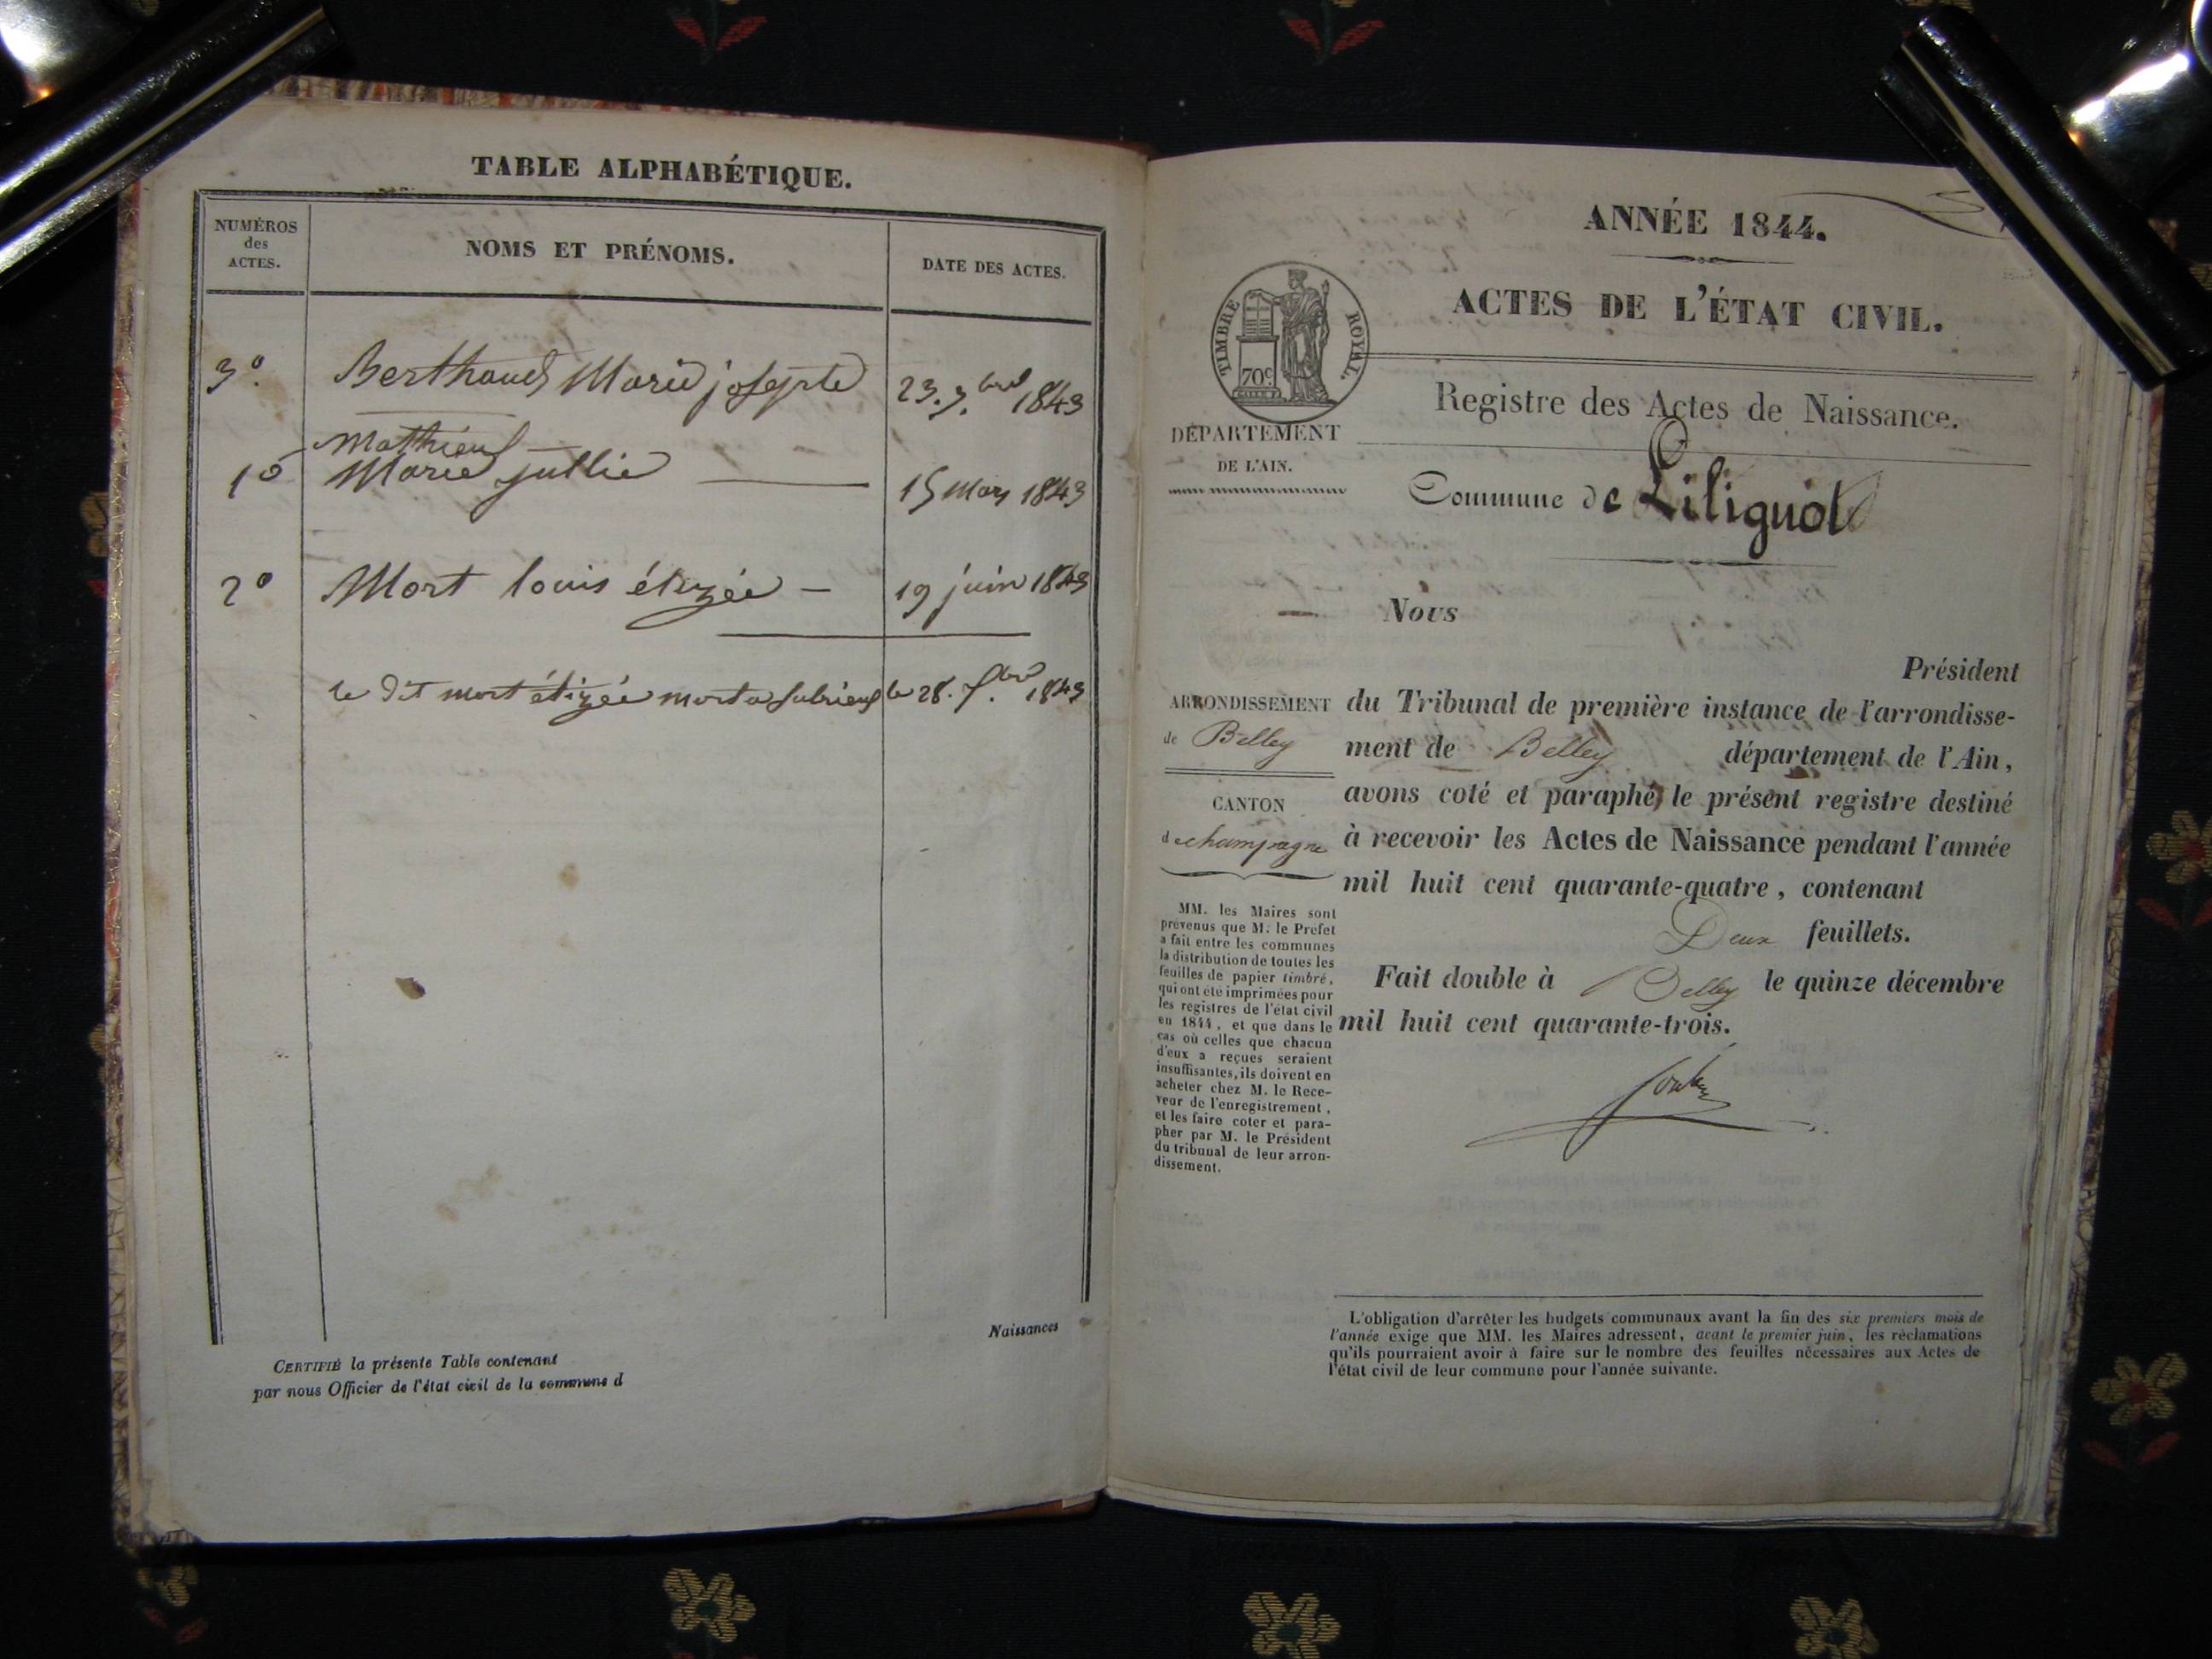 TABLE ALPHABÉTIQUE.
NUMÉROS
des
ACTES.
NOMS ET PRÉNOMS.
DATE DES ACTES.
3º. Berthaud Marie josepte 23. 7.bre 1843
Mathieu
1º Marie jullie 15 Mars 1843
2º Mort louis élizée - 19 juin 1843
le dit mort élizée mort a le 28. 1843
Naissances
CERTIFIÉ la présente Table contenant
par nous Officier de l'état civil de la commune d
ANNÉE 1844.
ACTES DE L'ÉTAT CIVIL.
TIMBRE ROYAL.
70c
Registre des Actes de Naissance.
DÉPARTEMENT
DE L'AIN.
Commune de Lilignod
Nous
Président
ARRONDISSEMENT
de Belley
du Tribunal de première instance de l'arrondisse-
ment de Belley département de l'Ain,
CANTON
de champagne
avons coté et paraphé le présent registre destiné
à recevoir les Actes de Naissance pendant l'année
mil huit cent quarante-quatre, contenant
Deux feuillets.
Fait double à Belley le quinze décembre
mil huit cent quarante-trois.
MM. les Maires sont
prévenus que M. le Préfet
a fait entre les communes
la distribution de toutes les
feuilles de papier timbré,
qui ont été imprimées pour
les registres de l'état civil
en 1844, et que dans le
cas où celles que chacun
d'eux a reçues seraient
insuffisantes, ils doivent en
acheter chez M. le Rece-
veur de l'enregistrement,
et les faire coter et para-
pher par M. le Président
du tribunal de leur arron-
dissement.
L'obligation d'arrêter les budgets communaux avant la fin des six premiers mois de
l'année exige que MM. les Maires adressent, avant le premier juin, les réclamations
qu'ils pourraient avoir à faire sur le nombre des feuilles nécessaires aux Actes de
l'état civil de leur commune pour l'année suivante.